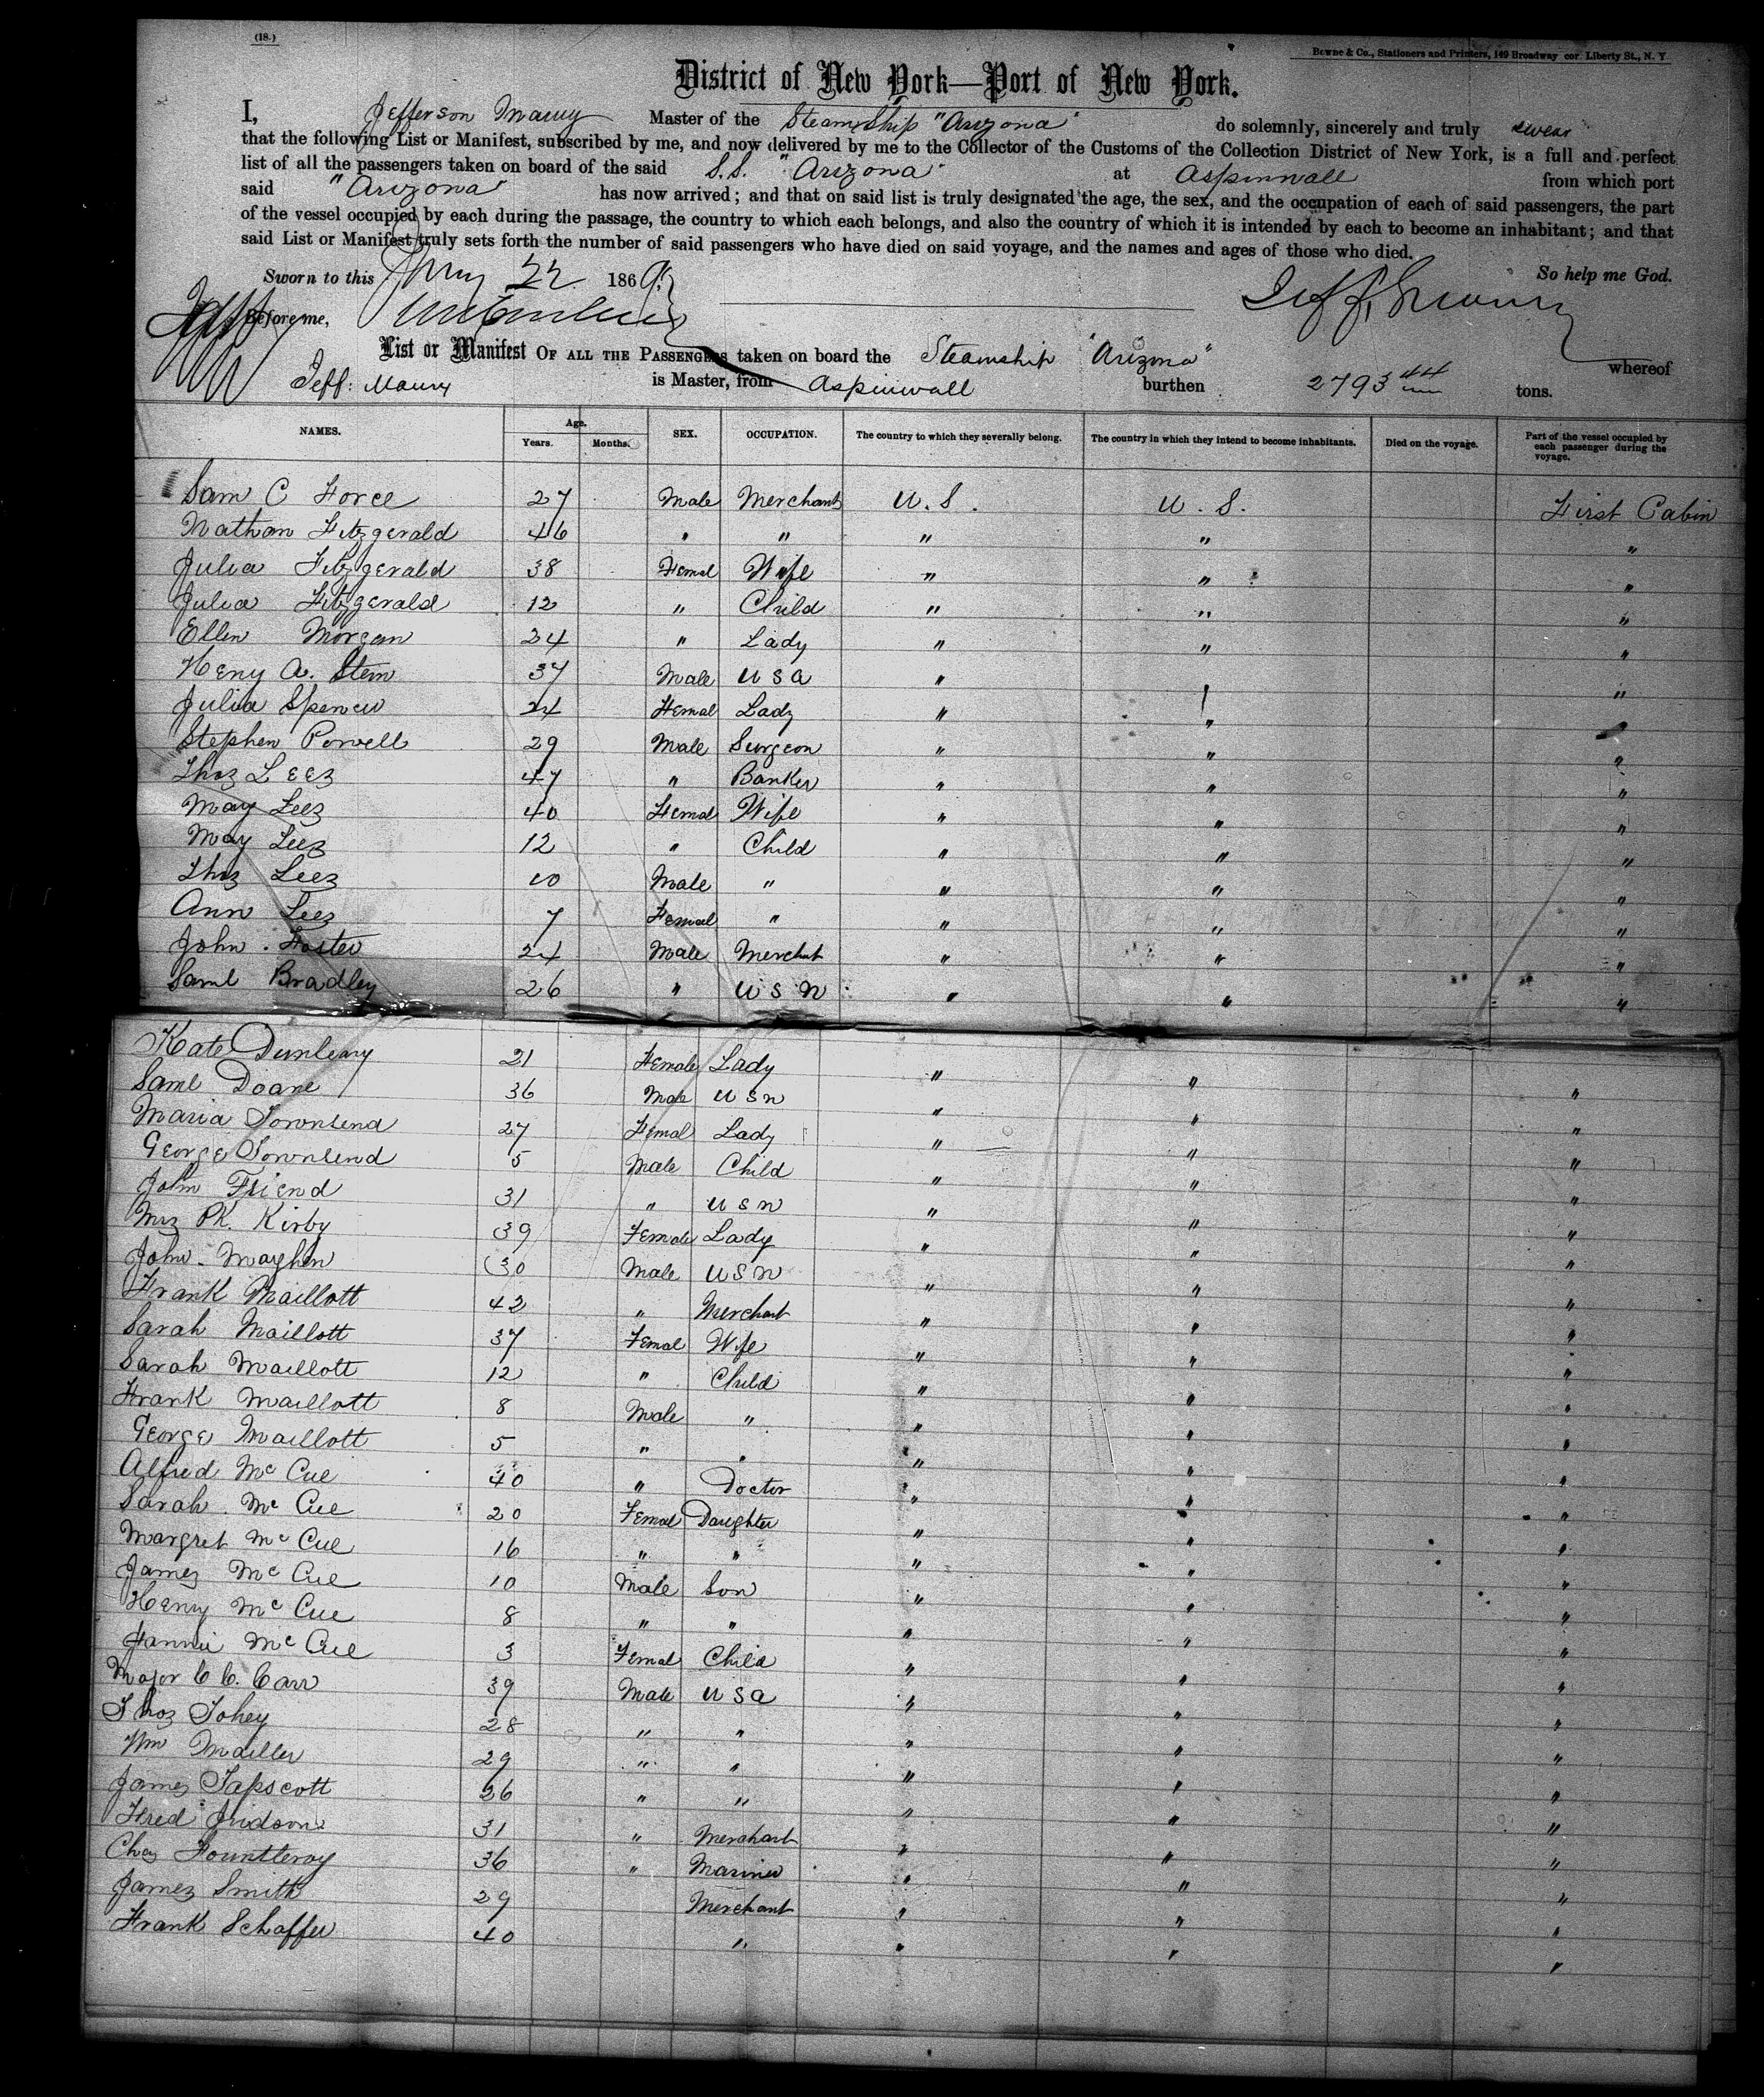 (18.)
Bowne & Co., Stationers and Printers, 149 Broadway cor. Liberty St., N. Y
District of New York—Port of New York.
I, Jefferson Maury Master of the Steamship "Arizona" do solemnly, sincerely and truly swear
that the following List or Manifest, subscribed by me, and now delivered by me to the Collector of the Customs of the Collection District of New York, is a full and perfect
list of all the passengers taken on board of the said S.S. "Arizona" at Aspinwall from which port
said "Arizona" has now arrived; and that on said list is truly designated the age, the sex, and the occupation of each of said passengers, the part
of the vessel occupied by each during the passage, the country to which each belongs, and also the country of which it is intended by each to become an inhabitant; and that
said List or Manifest truly sets forth the number of said passengers who have died on said voyage, and the names and ages of those who died.
Sworn to this May 22 1869. So help me God.
Before me, Jeff. Maury
List or Manifest OF ALL THE PASSENGERS taken on board the Steamship "Arizona" whereof
Jeff: Maury is Master, from Aspinwall burthen 2793 44 tons.
NAMES. Age. Years. Months. SEX. OCCUPATION. The country to which they severally belong. The country in which they intend to become inhabitants. Died on the voyage. Part of the vessel occupied by each passenger during the voyage.
Sam C Force 27 Male Merchant U. S. U. S. First Cabin
Nathan Fitzgerald 46 " " " " "
Julia Fitzgerald 38 Femal Wife " " "
Julia Fitzgerald 12 " Child " " "
Ellen Morgan 24 " Lady " " "
Heny A. Stem 37 Male U S A " " "
Julia Spencer 24 Femal Lady " " "
Stephen Powell 29 Male Surgeon " " "
Thoz Leez 47 " Banker " " "
May Leez 40 Femal Wife " " "
May Leez 12 " Child " " "
Thoz Leez 10 Male " " " "
Ann Leez 7 Femal " " " "
John Foster 24 Male Merchant " " "
Saml Bradley 26 " U S N " " "
Kate Dunleavy 21 Female Lady " " "
Saml Doane 36 Male U S N " " "
Maria Townsend 27 Femal Lady " " "
George Townsend 5 Male Child " " "
John Friend 31 " U S N " " "
Mrs PK. Kirby 39 Female Lady " " "
John Maghen 30 Male U S N " " "
Frank Maillott 42 " Merchant " " "
Sarah Maillott 37 Femal Wife " " "
Sarah Maillott 12 " Child " " "
Frank Maillott 8 Male " " " "
George Maillott 5 " " " " "
Alfred Mc Cue 40 " Doctor " " "
Sarah Mc Cue 20 Femal Daughter " " "
Margret Mc Cue 16 " " " " "
James Mc Cue 10 Male Son " " "
Henry Mc Cue 8 " " " " "
Fannie Mc Cue 3 Femal Child " " "
Major C C. Carr 39 Male U S A " " "
Thoz Tohey 28 " " " " "
Wm Mailler 29 " " " " "
James Tapscott 26 " " " " "
Fred Judson 31 " Merchant " " "
Chas Fountleroy 36 " Mariner " " "
James Smith 29 Merchant " " "
Frank Schaffer 40 " " " "